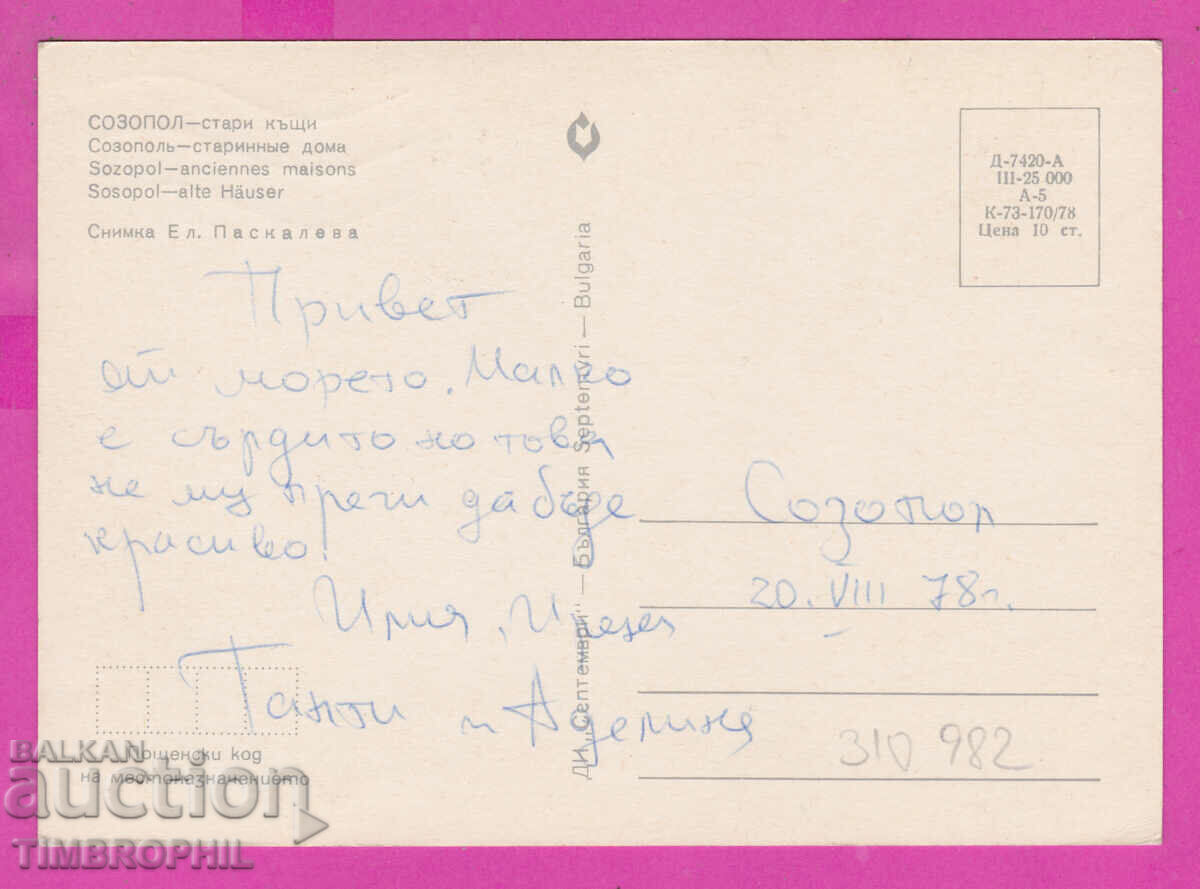 СОЗОПОЛ—стари къщи
Созополь—старинные дома
Sozopol—anciennes maisons
Sosopol—alte Häuser
Снимка Ел. Паскалева
Привет
от морето. Малко
е сърдито но това
не му пречи да бъде
красиво!
Илия,
Танти и Аделина
Пощенски код
на местоназначението
ДИ „Септември" — България Septemvri — Bulgaria
Д-7420-А
III-25 000
А-5
К-73-170/78
Цена 10 ст.
Созопол
20. VIII 78 г.
310 982
BALKAN
auction
TIMBROPHIL